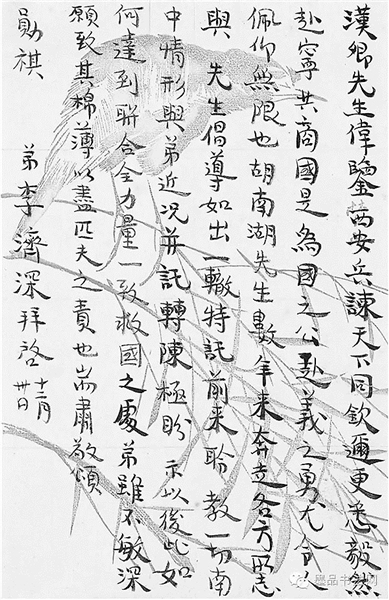 漢卿先生偉鑒西安兵諫天下同欽邇更悉毅然
赴寧共商國是為國之公赴義之勇尤令人
佩仰無限也胡南湖先生數年来奔走各方所志
與 先生倡導如出一轍特託前来聆教一切南
中情形與弟近况并託轉陳極盼 示以後此如
何達到聯合全力量一致救國之處弟雖不敏深
願致其棉薄以盡匹夫之責也耑肅敬頌
勛祺 弟李濟深拜啓 十二月卅日
墨品书法网